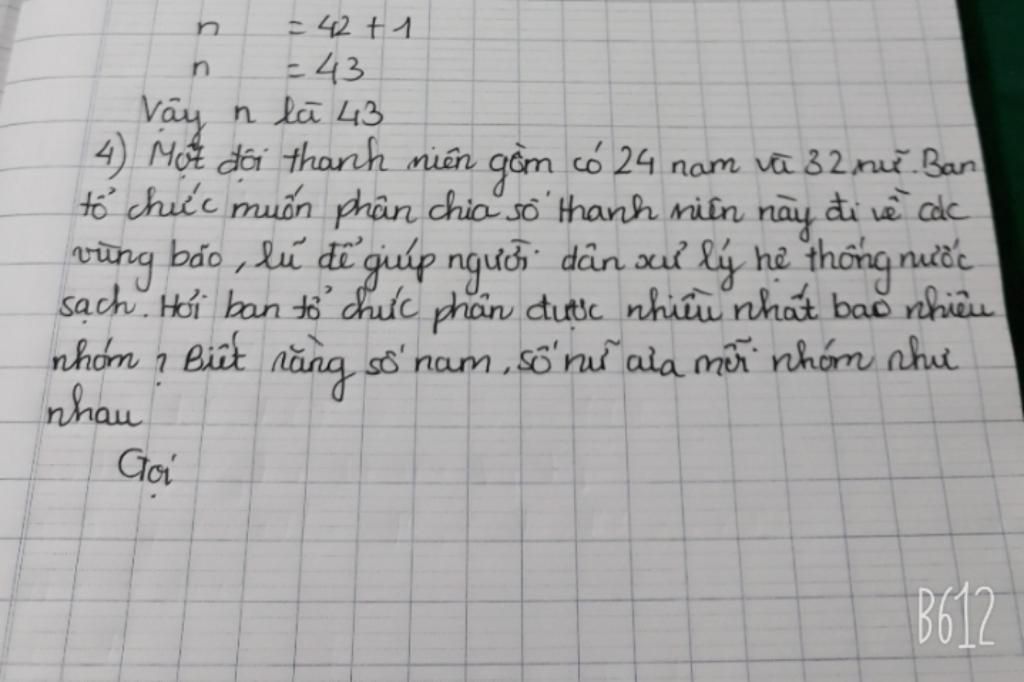 n = 42 + 1
n = 43
Vậy n là 43
4) Một đội thanh niên gồm có 24 nam và 32 nữ. Ban
tổ chức muốn phân chia số thanh niên này đi về các
vùng bão, lũ để giúp người dân xử lý hệ thống nước
sạch. Hỏi ban tổ chức phân được nhiều nhất bao nhiêu
nhóm? Biết rằng số nam, số nữ của mỗi nhóm như
nhau
Gọi
B612